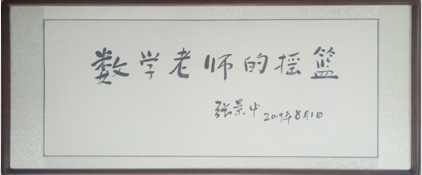 数学老师的摇篮
张景中 2019年8月1日